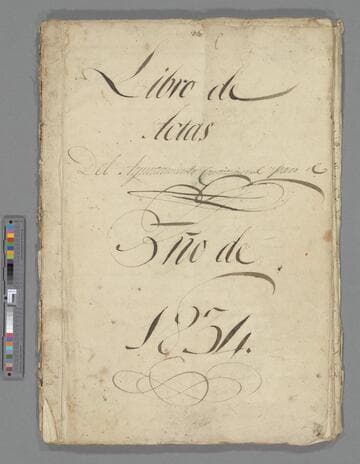 Libro de
Actas
Del Ayuntamiento para el
Año de
1834.